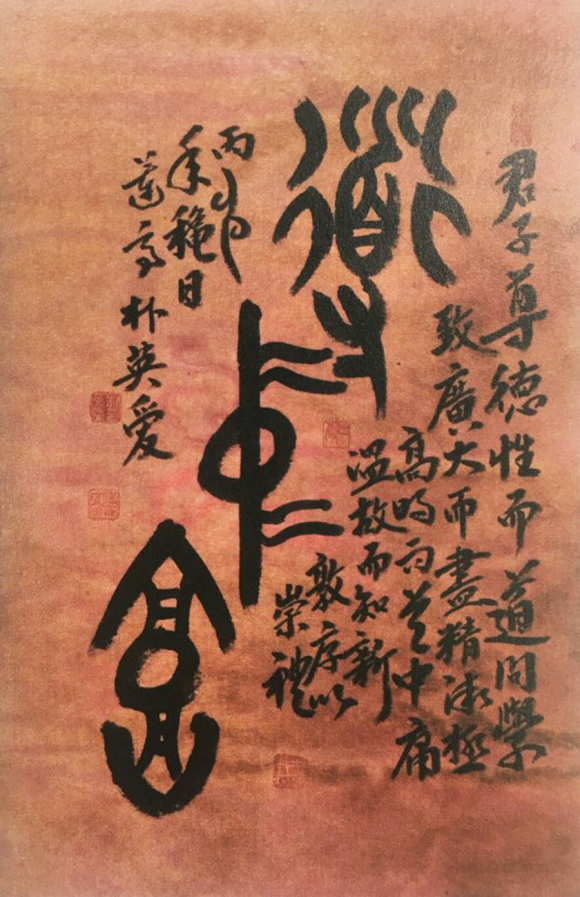 道中庸
君子尊德性而道問學
致廣大而盡精微極
高明而道中庸
溫故而知新
敦厚以
崇禮
丙申
秊穐日
朴英愛